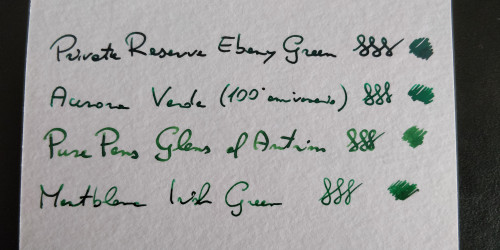 Private Reserve Ebony Green
Aurora Verde (100° anniversario)
Pure Pens Glens of Antrim
Montblanc Irish Green